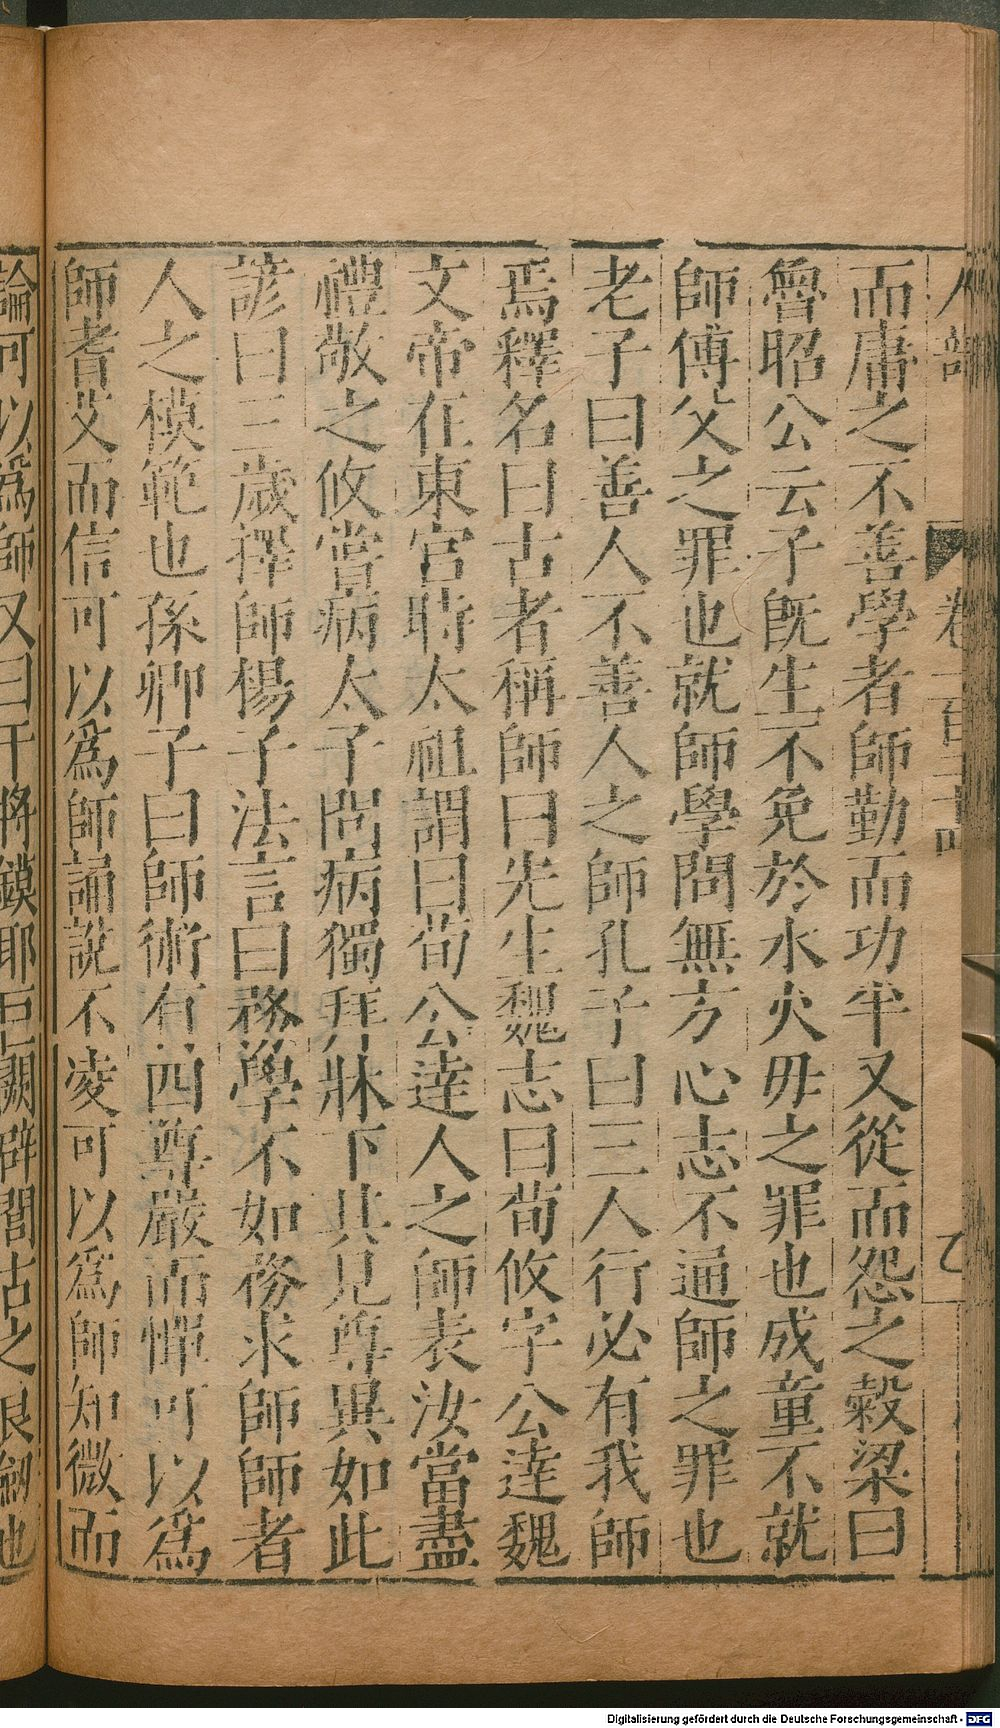 人部
卷一百二十四
七
而庸之不善學者師勤而功半又從而怨之穀梁曰
魯昭公云子既生不免於水火毋之罪也成童不就
師傅父之罪也就師學問無方心志不通師之罪也
老子曰善人不善人之師孔子曰三人行必有我師
焉釋名曰古者稱師曰先生魏志曰荀攸字公達魏
文帝在東宮時太祖謂曰荀公達人之師表汝當盡
禮敬之攸嘗病太子問病獨拜牀下其見尊異如此
諺曰三歲擇師楊子法言曰務學不如務求師師者
人之模範也孫卿子曰師術有四尊嚴而憚可以爲
師耆艾而信可以爲師誦說不凌可以爲師知微而
論可以爲師又曰干將鏌耶巨闕辟閭古之良劒也
Digitalisierung gefördert durch die Deutsche Forschungsgemeinschaft - DFG